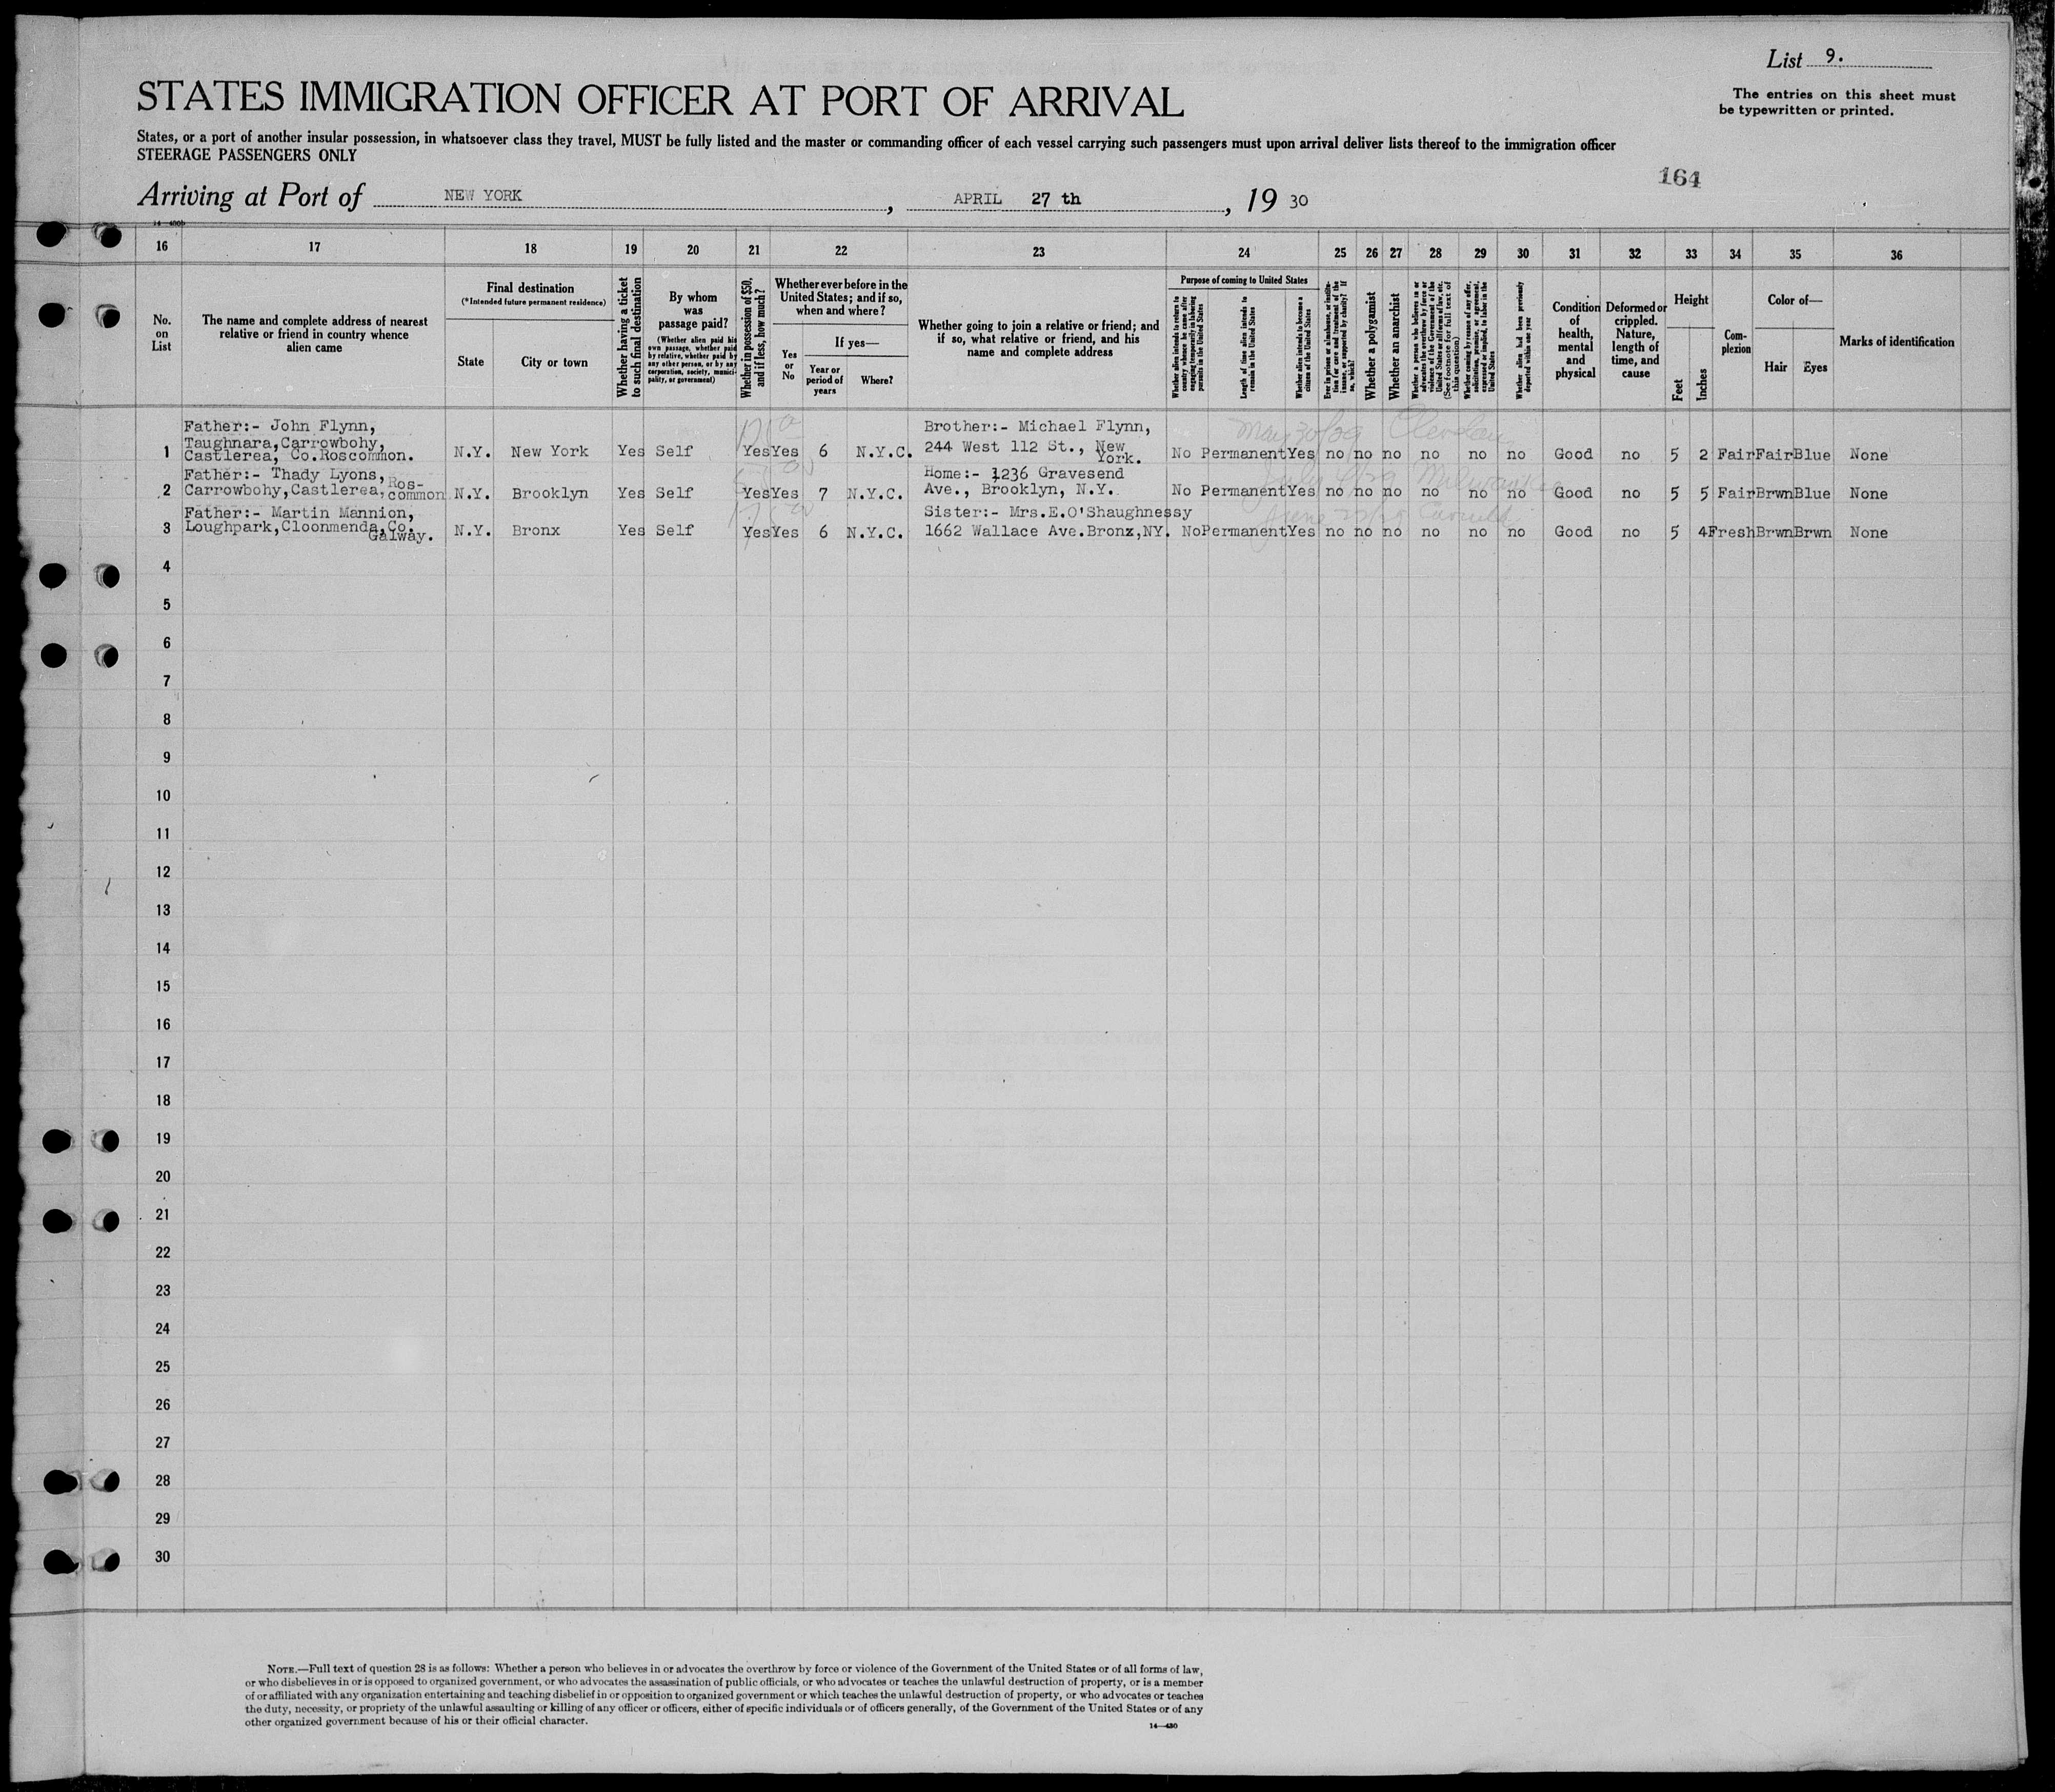 List 9.
The entries on this sheet must
be typewritten or printed.
STATES IMMIGRATION OFFICER AT PORT OF ARRIVAL
States, or a port of another insular possession, in whatsoever class they travel, MUST be fully listed and the master or commanding officer of each vessel carrying such passengers must upon arrival deliver lists thereof to the immigration officer
STEERAGE PASSENGERS ONLY
164
Arriving at Port of NEW YORK, APRIL 27 th, 19 30
16 17 18 19 20 21 22 23 24 25 26 27 28 29 30 31 32 33 34 35 36
No. on List
The name and complete address of nearest
relative or friend in country whence
alien came
Final destination
(*Intended future permanent residence)
State
City or town
Whether having a ticket
to such final destination
By whom
was
passage paid?
(Whether alien paid his
own passage, whether paid
by relative, whether paid by
any other person, or by any
corporation, society, munici-
pality, or government)
Whether in possession of $50,
and if less, how much?
Whether ever before in the
United States; and if so,
when and where?
Yes
or
No
If yes—
Year or
period of
years
Where?
Whether going to join a relative or friend; and
if so, what relative or friend, and his
name and complete address
Purpose of coming to United States
Whether alien intends to return to
country whence he came after
engaging temporarily in laboring
pursuits in the United States
Length of time alien intends to
remain in the United States
Whether alien intends to become a
citizen of the United States
Ever in prison or almshouse, or institu-
tion for care and treatment of the
insane, or supported by charity? If
so, which?
Whether a polygamist
Whether an anarchist
Whether a person who believes in or
advocates the overthrow by force or
violence of the Government of the
United States or all forms of law, etc.
(See footnote for full text of
this question)
Whether coming by reason of any offer,
solicitation, promise, or agreement,
expressed or implied, to labor in the
United States
Whether alien had been previously
deported within one year
Condition
of
health,
mental
and
physical
Deformed or
crippled.
Nature,
length of
time, and
cause
Height
Feet
Inches
Com-
plexion
Color of—
Hair
Eyes
Marks of identification
Father:- John Flynn,
Taughnara,Carrowbohy,
1 Castlerea, Co.Roscommon. N.Y. New York Yes Self Yes Yes 6 N.Y.C.
Brother:- Michael Flynn,
244 West 112 St., New
York. No Permanent Yes no no no no no no Good no 5 2 Fair Fair Blue None
May 30/29 Cleveland
Father:- Thady Lyons,
2 Carrowbohy,Castlerea, Ros-
common N.Y. Brooklyn Yes Self Yes Yes 7 N.Y.C.
Home:- 1236 Gravesend
Ave., Brooklyn, N.Y. No Permanent Yes no no no no no no Good no 5 5 Fair Brwn Blue None
Milwaukee
Father:- Martin Mannion,
3 Loughpark,Cloonmenda,Co.
Galway. N.Y. Bronx Yes Self Yes Yes 6 N.Y.C.
Sister:- Mrs.E.O'Shaughnessy
1662 Wallace Ave.Bronz,NY. No Permanent Yes no no no no no no Good no 5 4 Fresh Brwn Brwn None
4
5
6
7
8
9
10
11
12
13
14
15
16
17
18
19
20
21
22
23
24
25
26
27
28
29
30
NOTE.—Full text of question 28 is as follows: Whether a person who believes in or advocates the overthrow by force or violence of the Government of the United States or of all forms of law,
or who disbelieves in or is opposed to organized government, or who advocates the assassination of public officials, or who advocates or teaches the unlawful destruction of property, or is a member
of or affiliated with any organization entertaining and teaching disbelief in or opposition to organized government or which teaches the unlawful destruction of property, or who advocates or teaches
the duty, necessity, or propriety of the unlawful assaulting or killing of any officer or officers, either of specific individuals or of officers generally, of the Government of the United States or of any
other organized government because of his or their official character.
14—430